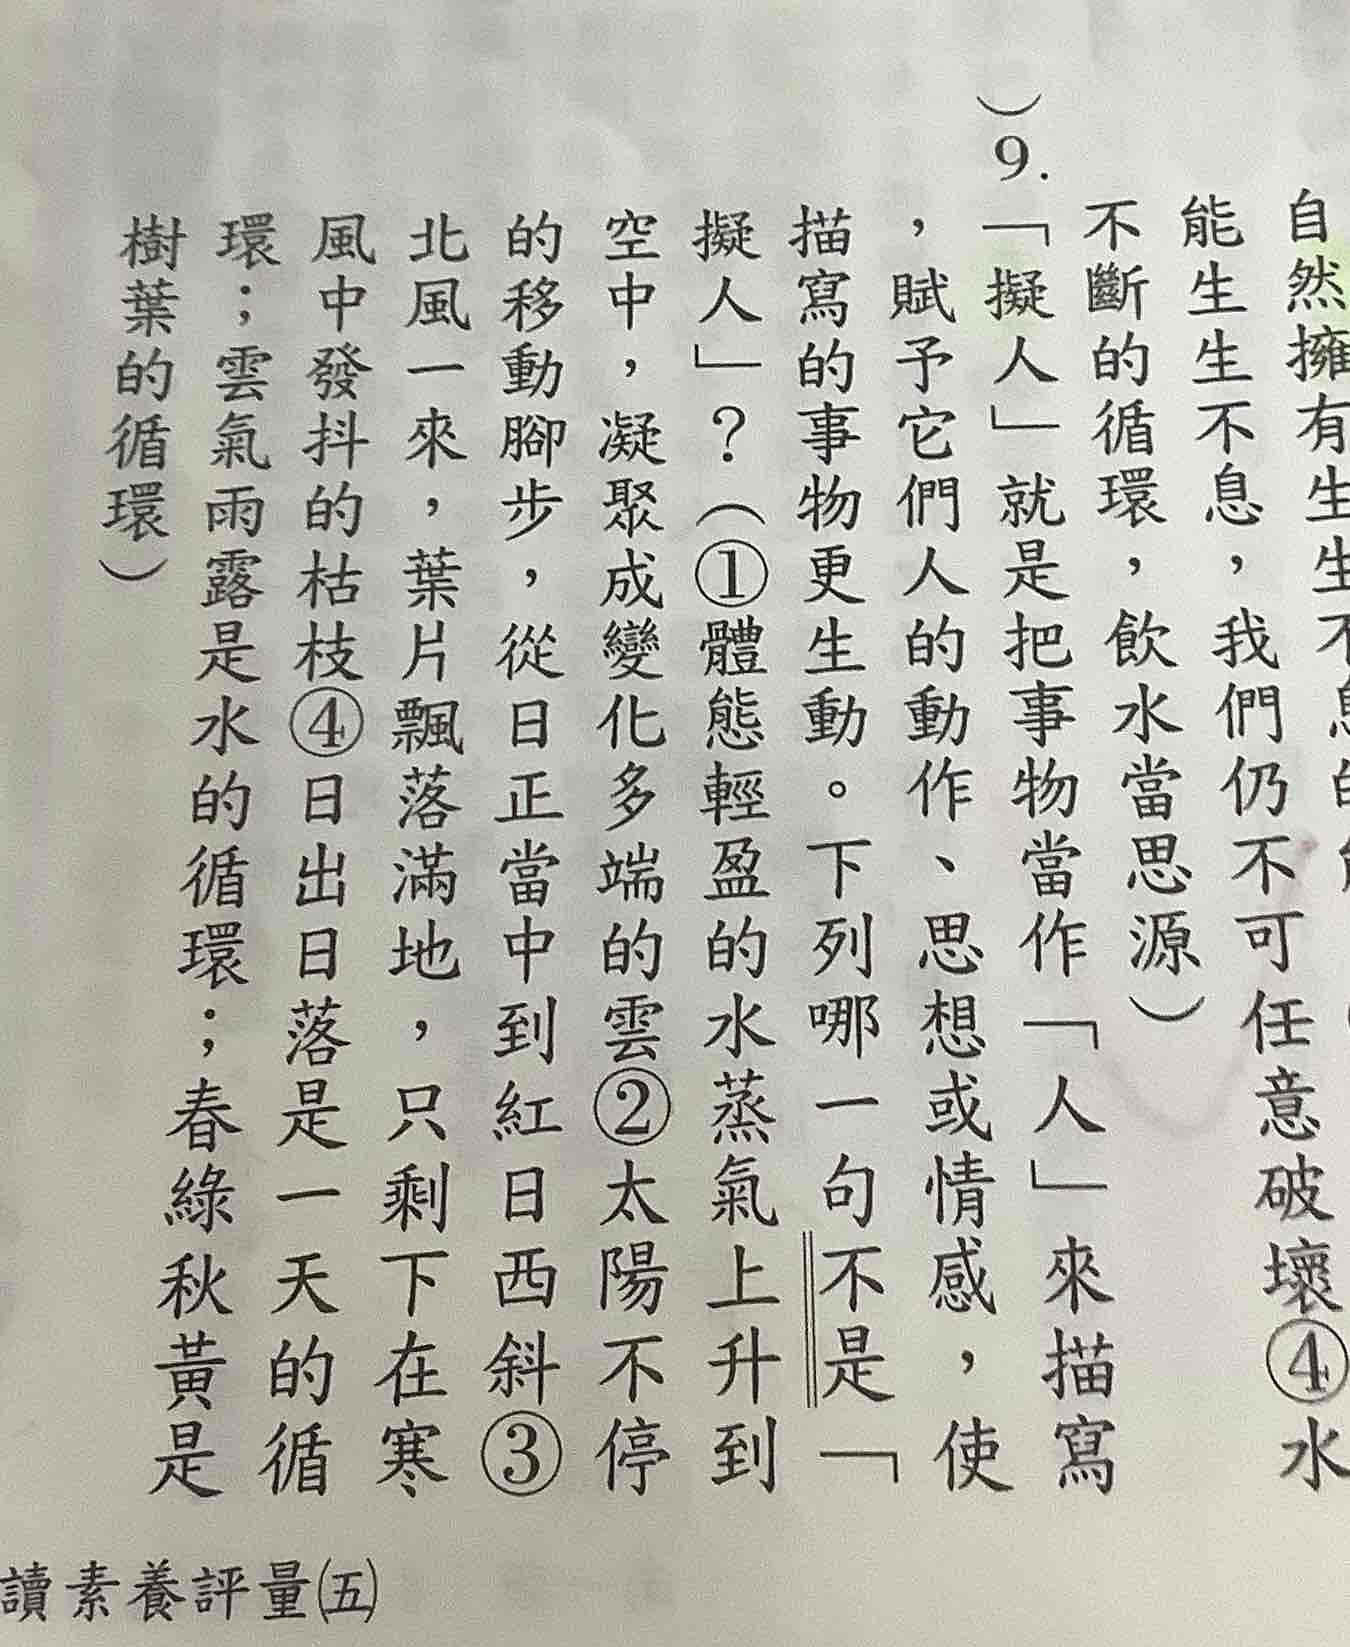 自然擁有生生不息的
能生生不息，我們仍不可任意破壞④水
不斷的循環，飲水當思源）
）9.「擬人」就是把事物當作「人」來描寫
，賦予它們人的動作、思想或情感，使
描寫的事物更生動。下列哪一句不是「
擬人」？（①體態輕盈的水蒸氣上升到
空中，凝聚成變化多端的雲②太陽不停
的移動腳步，從日正當中到紅日西斜③
北風一來，葉片飄落滿地，只剩下在寒
風中發抖的枯枝④日出日落是一天的循
環；雲氣雨露是水的循環；春綠秋黃是
樹葉的循環）
讀素養評量㈤